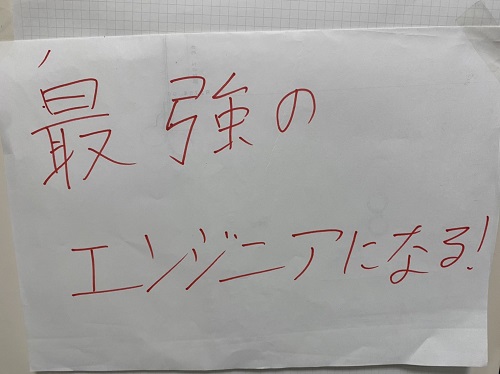 最強の
エンジニアになる!